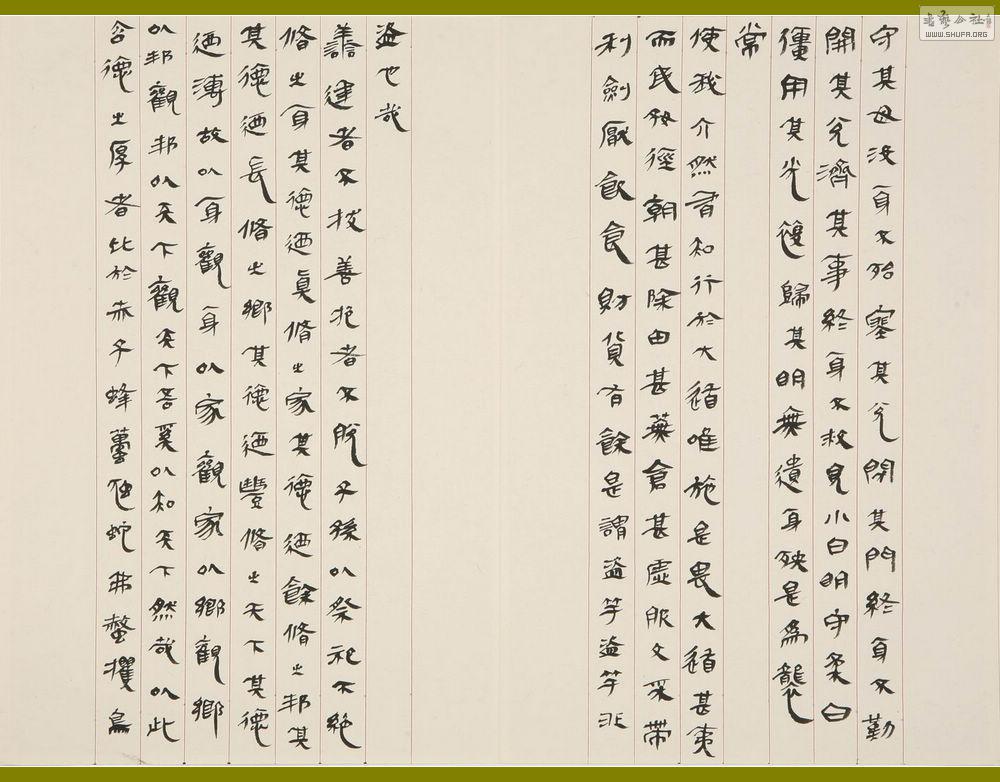 守其母没身不殆塞其兌閉其門終身不勤
開其兌濟其事終身不救見小曰明守柔曰
彊用其光復歸其明無遺身殃是爲襲
常
使我介然有知行於大道唯施是畏大道甚夷
而民好徑朝甚除田甚蕪倉甚虛服文采帶
利劍厭飲食財貨有餘是謂盜竽盜竽非
盜也哉
善建者不拔善抱者不脫子孫以祭祀不絕
脩之身其德迺真脩之家其德迺餘脩之邦其
其德迺長脩之鄉其德迺豐脩之天下其德
迺溥故以身觀身以家觀家以鄉觀鄉
以邦觀邦以天下觀天下吾奚以知天下然哉以此
含德之厚者比於赤子蜂蠆虺蛇弗螫攫鳥
书艺公社
WWW.SHUFA.ORG